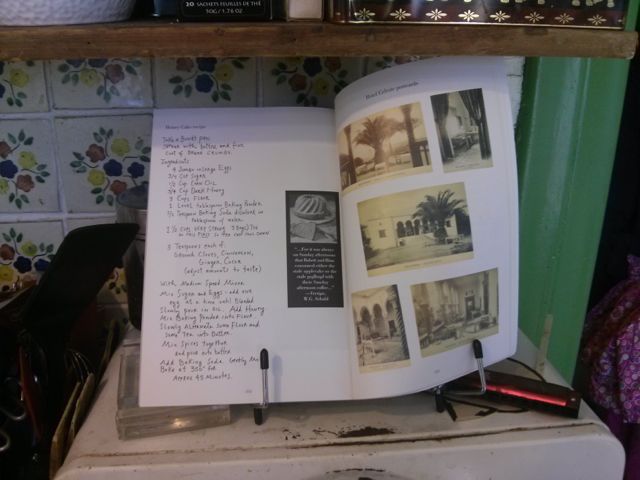 20 SACHETS FEUILLES DE THÉ
50G / 1.76 OZ
Honey Cake recipe
Hotel Celeste postcards
Take a Bundt pan
Grease with butter and fine
coat of bread crumbs.
Ingredients
4 Jumbo or Large Eggs
3/4 Cup Sugar
1/2 Cup Corn Oil
3/4 Cup Dark Honey
3 Cups Flour
1 Level tablespoon Baking Powder
1/2 Teaspoon Baking Soda dissolved in
tablespoon of water
1 1/2 Cups very strong Tea
3 Teaspoons each of:
Ground Cloves, Cinnamon,
Ginger, Cocoa
(adjust amounts to taste)
With Medium Speed Mixer
Mix Sugar and Eggs: add one
egg at a time until blended
Slowly pour in oil. Add Honey
Mix Baking Powder into Flour
Slowly Alternate some Flour and
some Tea into Batter.
Mix Spices together
and pour into batter
Add Baking Soda. Gently
Bake at 350° for
Approx 45 Minutes.
"...For it was always
on Sunday afternoons
that Robert and
consumed either the
stale applecake or the
stale guglhupf with
their Sunday
afternoon coffee..."
W.G. Sebald